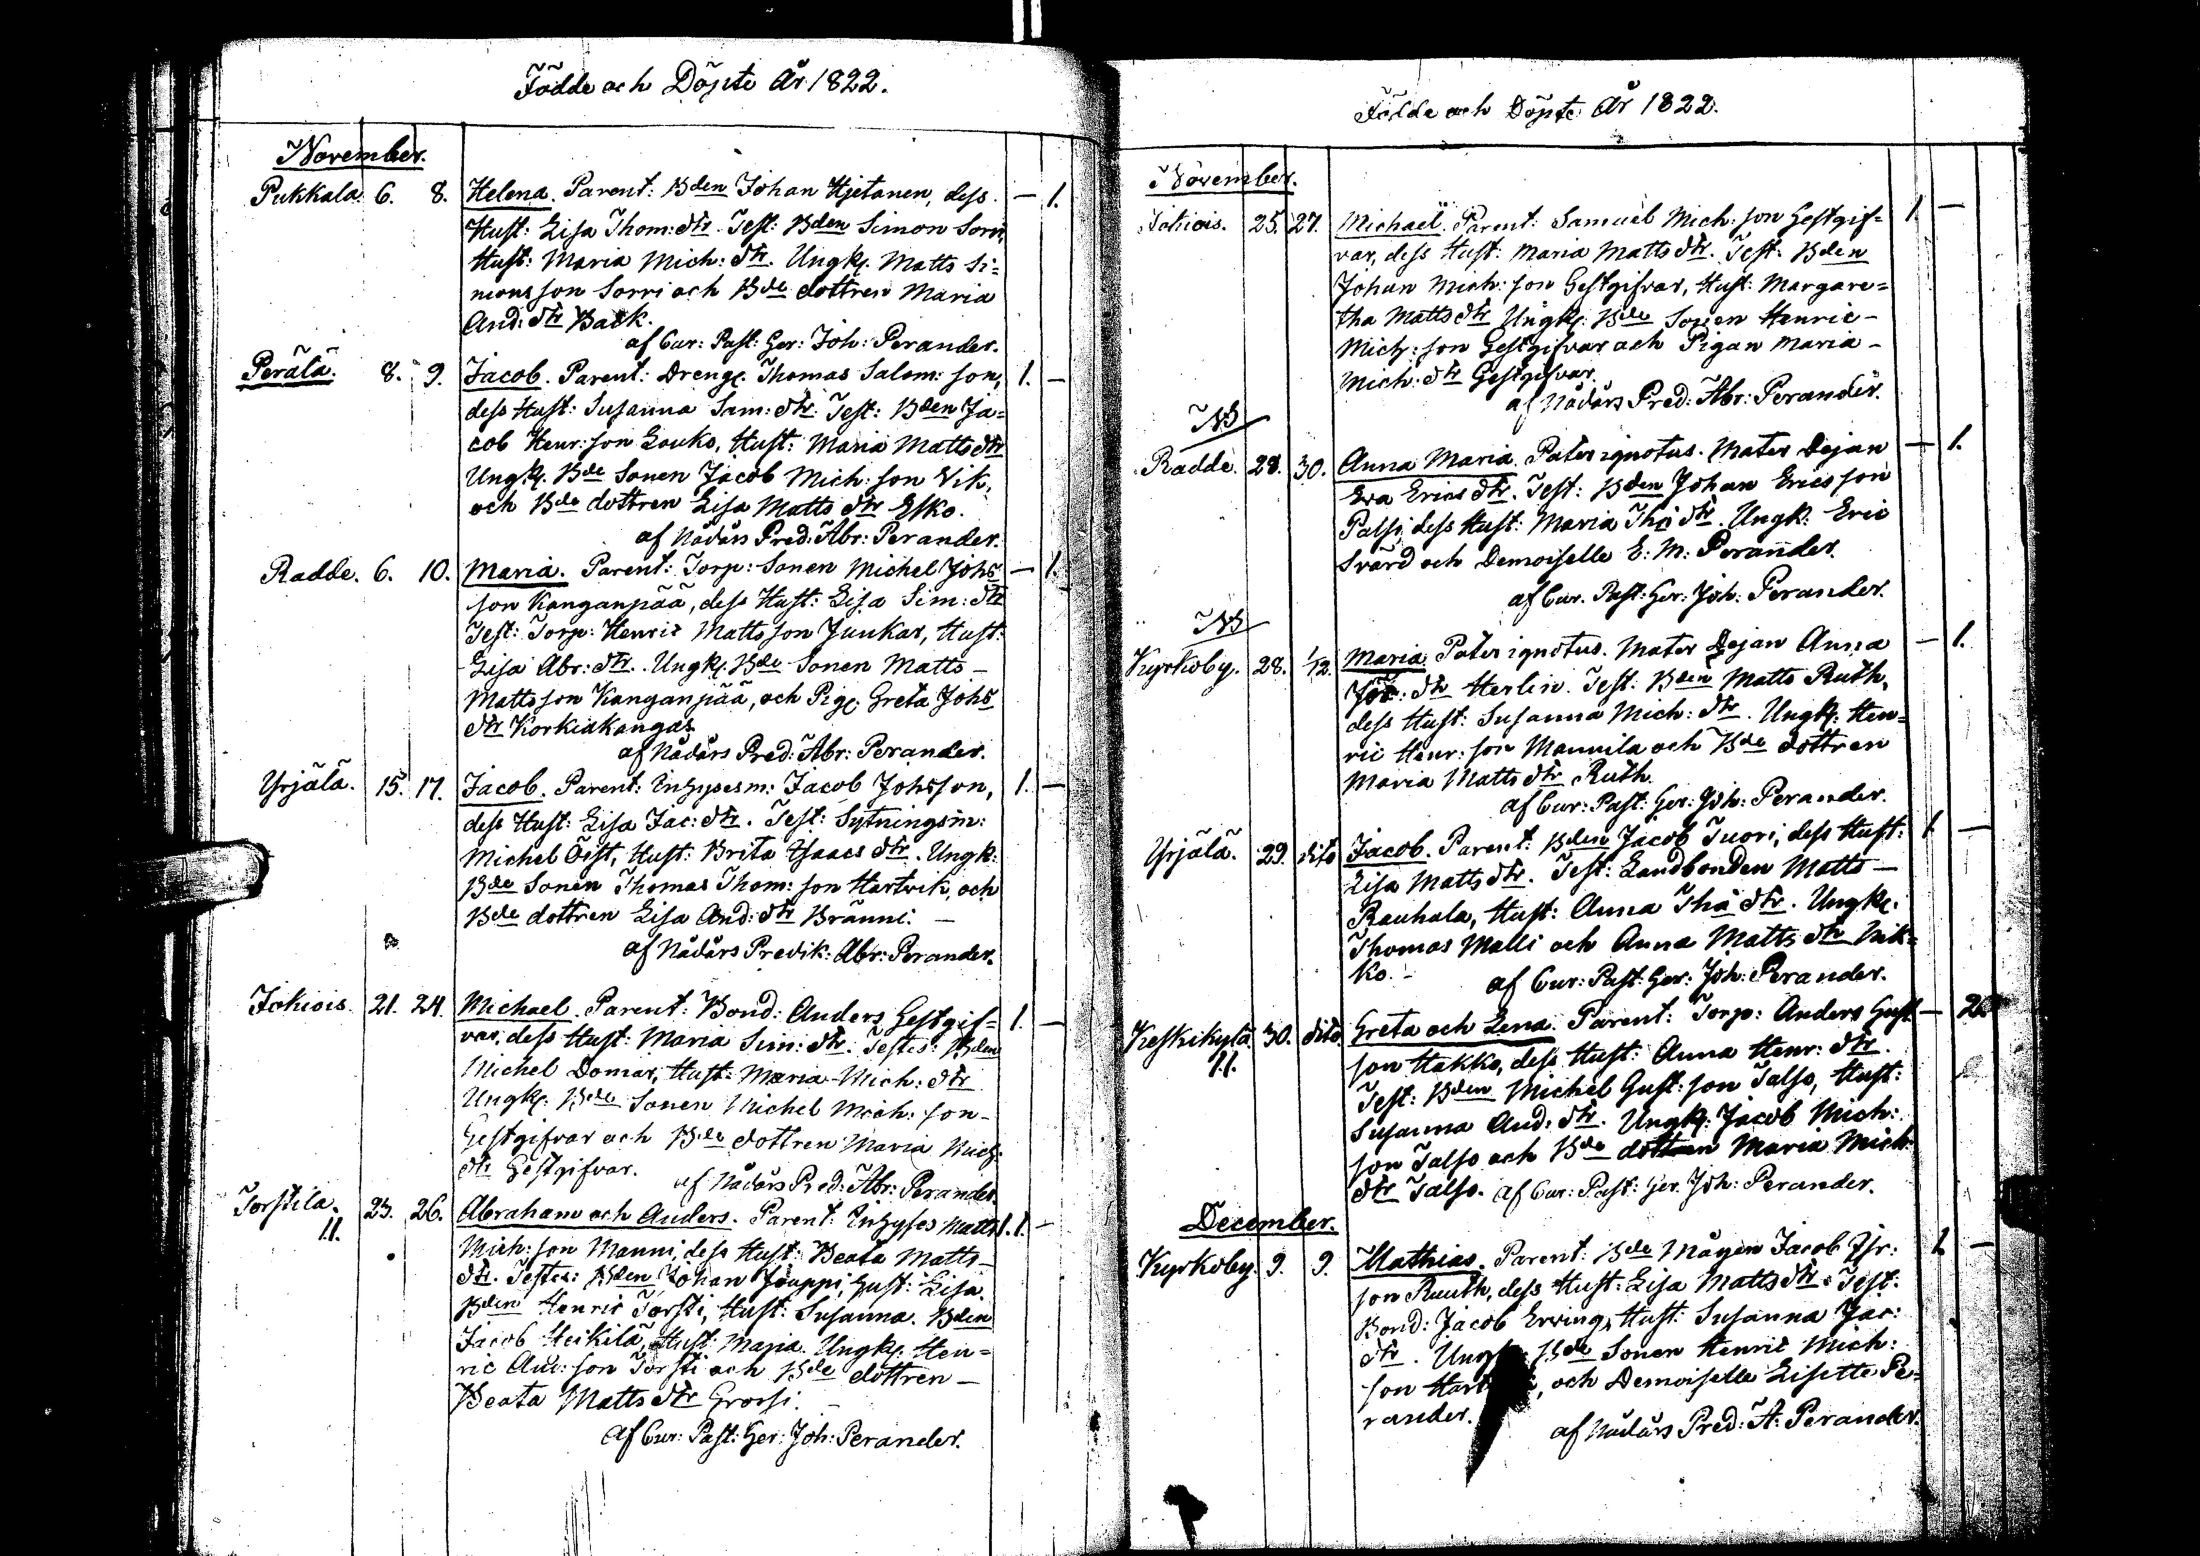 Födde och Döpte År 1822.
November.
Pukkala 6. 8. Helena. Parent: Bden Johan Hjetanen, dess — 1.
Hust: Lisa Thom: dtr. Test: Bden Simon Sorri,
Hust: Maria Mich: dtr. Ungk. Matts Si=
mons son Sorri och Bde dottren Maria
And: dtr Back.
af Cur: Past: Ger: Joh: Perander.
Perälä. 8. 9. Jacob. Parent: Dreng. Thomas Salom: son, 1. —
dess Hust: Susanna Sam: dtr. Test: Bden Ja=
cob Henr: son Louko, Hust: Maria Matts dtr
Ungk. Bde Sonen Jacob Mich: son Vik,
och Bde dottren Lisa Matts dtr Esko.
af Nådårs Pred: Abr: Perander.
Radde. 6. 10. Maria. Parent: Torp: Sonen Michel Johs — 1.
son Kanganpää, dess Hust: Lisa Sim: dtr
Test: Torp: Henric Mattsson Junkar, Hust:
Lisa Abr: dtr. Ungk. Bde Sonen Matts —
Mattsson Kanganpää, och Pig. Greta Johs
dtr Korkiakangas
af Nådårs Pred: Abr: Perander.
Yrjälä. 15. 17. Jacob. Parent: Inhysesm: Jacob Johsson, 1. —
dess Hust: Lisa Jac: dtr. Test: Sytningsm:
Michel Öst, Hust: Brita Isaacs dtr. Ungk:
Bde Sonen Thomas Thom: son Hartvik, och
Bde dottren Lisa And: dtr Bränni. —
af Nådårs Predik: Abr: Perander.
Jokiois. 21. 24. Michael. Parent: Bond: Anders Gestgif= 1. —
var, dess Hust: Maria Sim: dtr. Testes: Bden
Michel Domar, Hust: Maria Mich: dtr
Ungk. Bde Sonen Michel Mich: son —
Gestgifvar och Bde dottren Maria Mich:
dtr Gestgifvar. af Nådårs Pred: Abr: Perander
Torstila. 23. 26. Abraham och Anders. Parent: Inhyses Matts 1.1. —
11. Mich: son Manni, dess Hust: Beata Matts —
dtr. Testes: Bden Johan Jouppi, Hust: Lisa.
Bden Henric Torsti, Hust: Susanna. Bden
Jacob Heikilä, Hust: Maria. Ungk. Hen=
ric And: son Torsti och Bde dottren —
Beata Matts dtr Grorsi. —
af Cur: Past: Ger: Joh: Perander.
Födde och Döpte År 1822.
November.
Jokiois. 25. 27. Michael. Parent: Samuel Mich: son Gestgif= 1. —
var, dess Hust: Maria Matts dtr. Test: Bden
Johan Mich: son Gestgifvar, Hust: Margare=
tha Matts dtr Ungk. Bde Sonen Henric —
Mich: son Gestgifvar och Pigan Maria —
Mich: dtr Gestgifvar.
af Nådårs Pred: Abr: Perander.
NB
Radde. 28. 30. Anna Maria. Pater ignotus. Mater Dejan — 1.
Eva Erics dtr. Test: Bden Johan Ericsson
Palsi, dess Hust: Maria Tho dtr. Ungk: Eric
Svärd och Demoiselle E: M: Perander.
af Cur. Past: Ger: Joh: Perander.
NB
Kyrkoby. 28. 1/12. Maria. Pater ignotus. Mater Dejan Anna — 1.
dtr Herlin. Test: Bden Matts Ruth,
dess Hust: Susanna Mich: dtr. Ungk. Hen=
ric Henr: son Mannila och Bde dottren
Maria Matts dtr Ruth.
af Cur: Past: Ger: Joh: Perander.
Yrjälä. 29. dito Jacob. Parent: Bden Jacob Tuori, dess Hust: 1. —
Lisa Matts dtr. Test: Landbonden Matts —
Rauhala, Hust: Anna Tho dtr. Ungk.
Thomas Malli och Anna Matts dtr Nik=
ko. — af Cur: Past: Ger: Joh: Perander.
Keskikylä 30. dito. Greta och Lena. Parent: Torp: Anders Gust — 2.
11. son Hakko, dess Hust: Anna Henr: dtr.
Test: Bden Michel Gust: son Talso, Hust:
Susanna And: dtr. Ungk. Jacob Mich:
son Talso och Bde dottren Maria Mich:
dtr Talso. af Cur: Past: Ger. Joh: Perander.
December.
Kyrkoby. 9. 9. Mathias. Parent: Bde Mågen Jacob 1. —
son Ruuth, dess Hust: Lisa Matts dtr. Test:
Bond: Jacob Erving, Hust: Susanna Jac:
dtr. Ungk: Bde Sonen Henric Mich:
son , och Demoiselle Lisette Pe=
rander.
af Nådårs Pred: A: Perander.